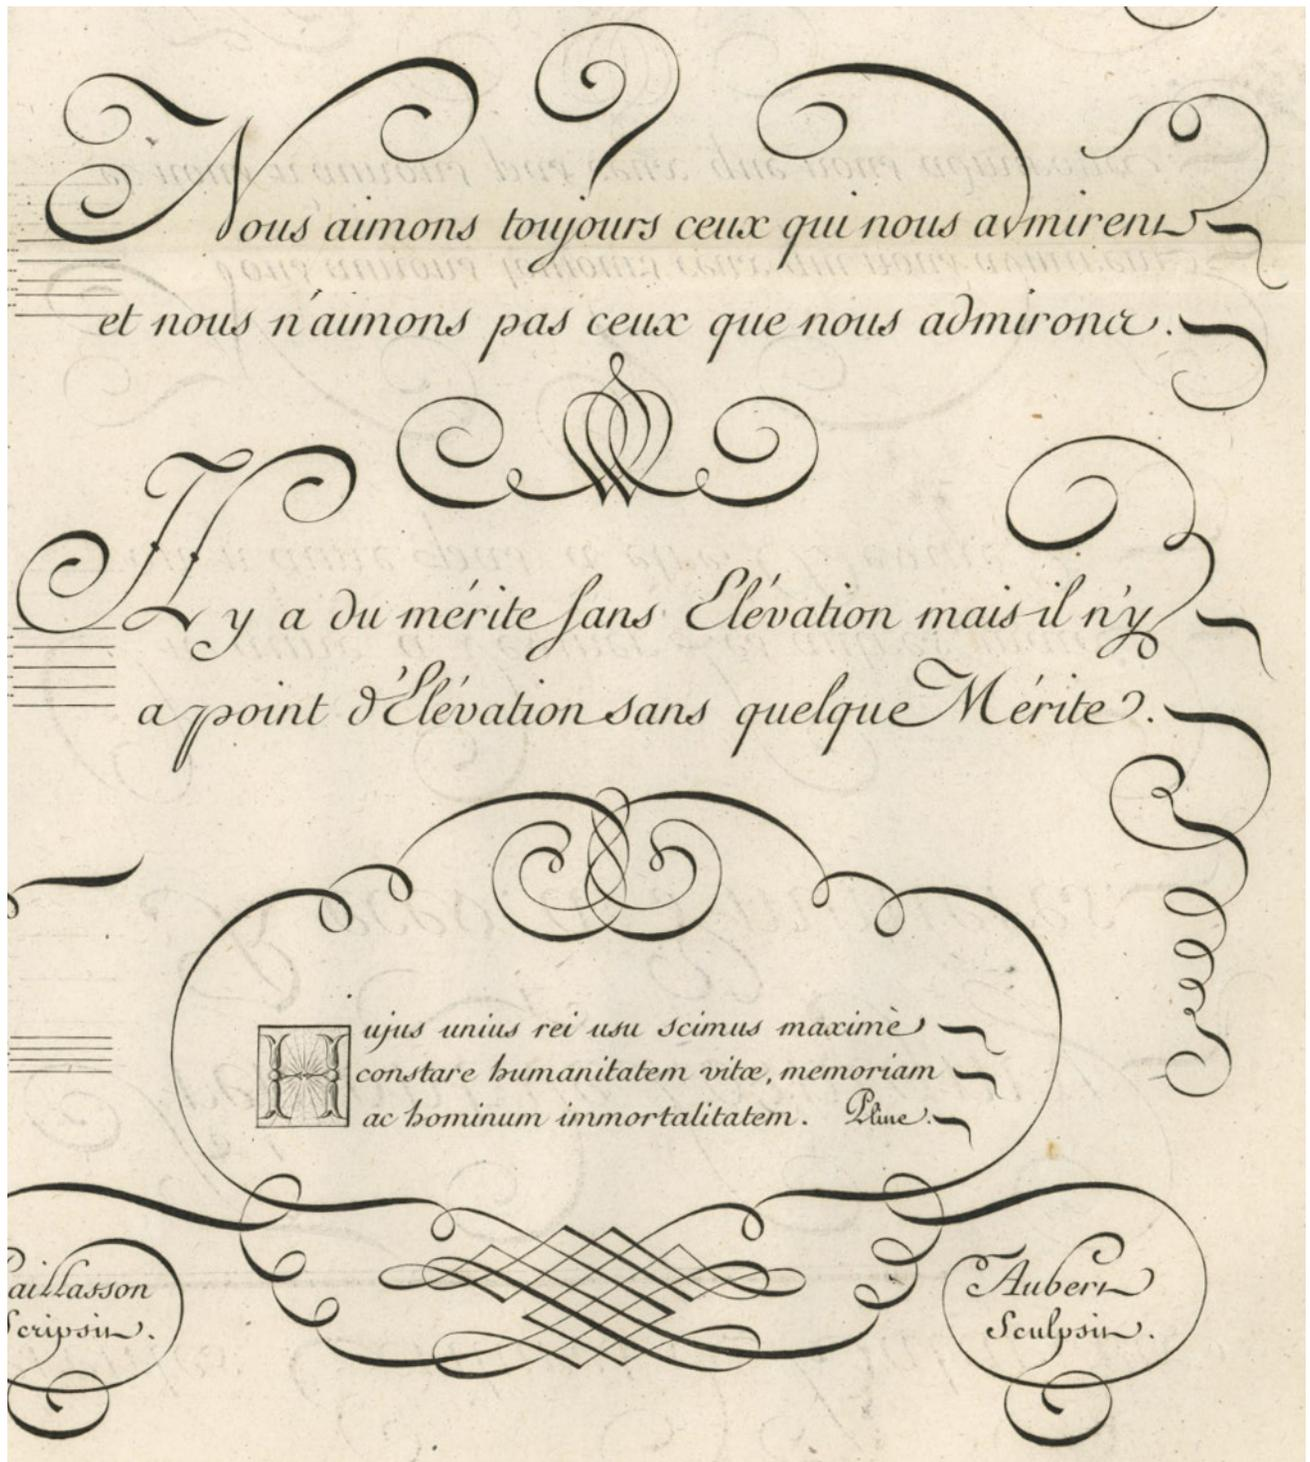 Nous aimons toujours ceux qui nous admirent
et nous n'aimons pas ceux que nous admirons.
Il y a du mérite sans Elévation mais il n'y
a point d'Elévation sans quelque Mérite.
Hujus unius rei usu scimus maximè
constare humanitatem vitæ, memoriam
ac hominum immortalitatem. Pline.
aillasson
Scripsit.
Aubert
Sculpsit.